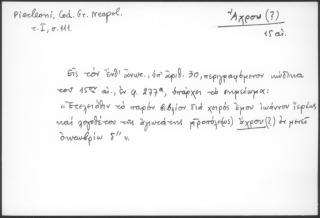 Pierleoni, Cod. Gr. Neapol.
τ. I, σ. 111.
Ἄχρου (?)
15 αἰ.
Εἰς τὸν ἐνθ' ἀνωτ., ὑπ' ἀριθ. 30, περιγραφόμενον κώδικα
τοῦ 15ου αἰ., ἐν φ. 277α, ὑπάρχει τὸ σημείωμα:
"Ἐτελειώθη τὸ παρὸν βιβλίον διὰ χειρὸς ἐμοῦ Ἰωάννου ἱερέως
καὶ λογοθέτου τῆς ἁγιωτάτης μ(ητ)ροπόλε(ως) Ἄχρου (?) ἐν μηνὶ
ὀκτωβρίῳ